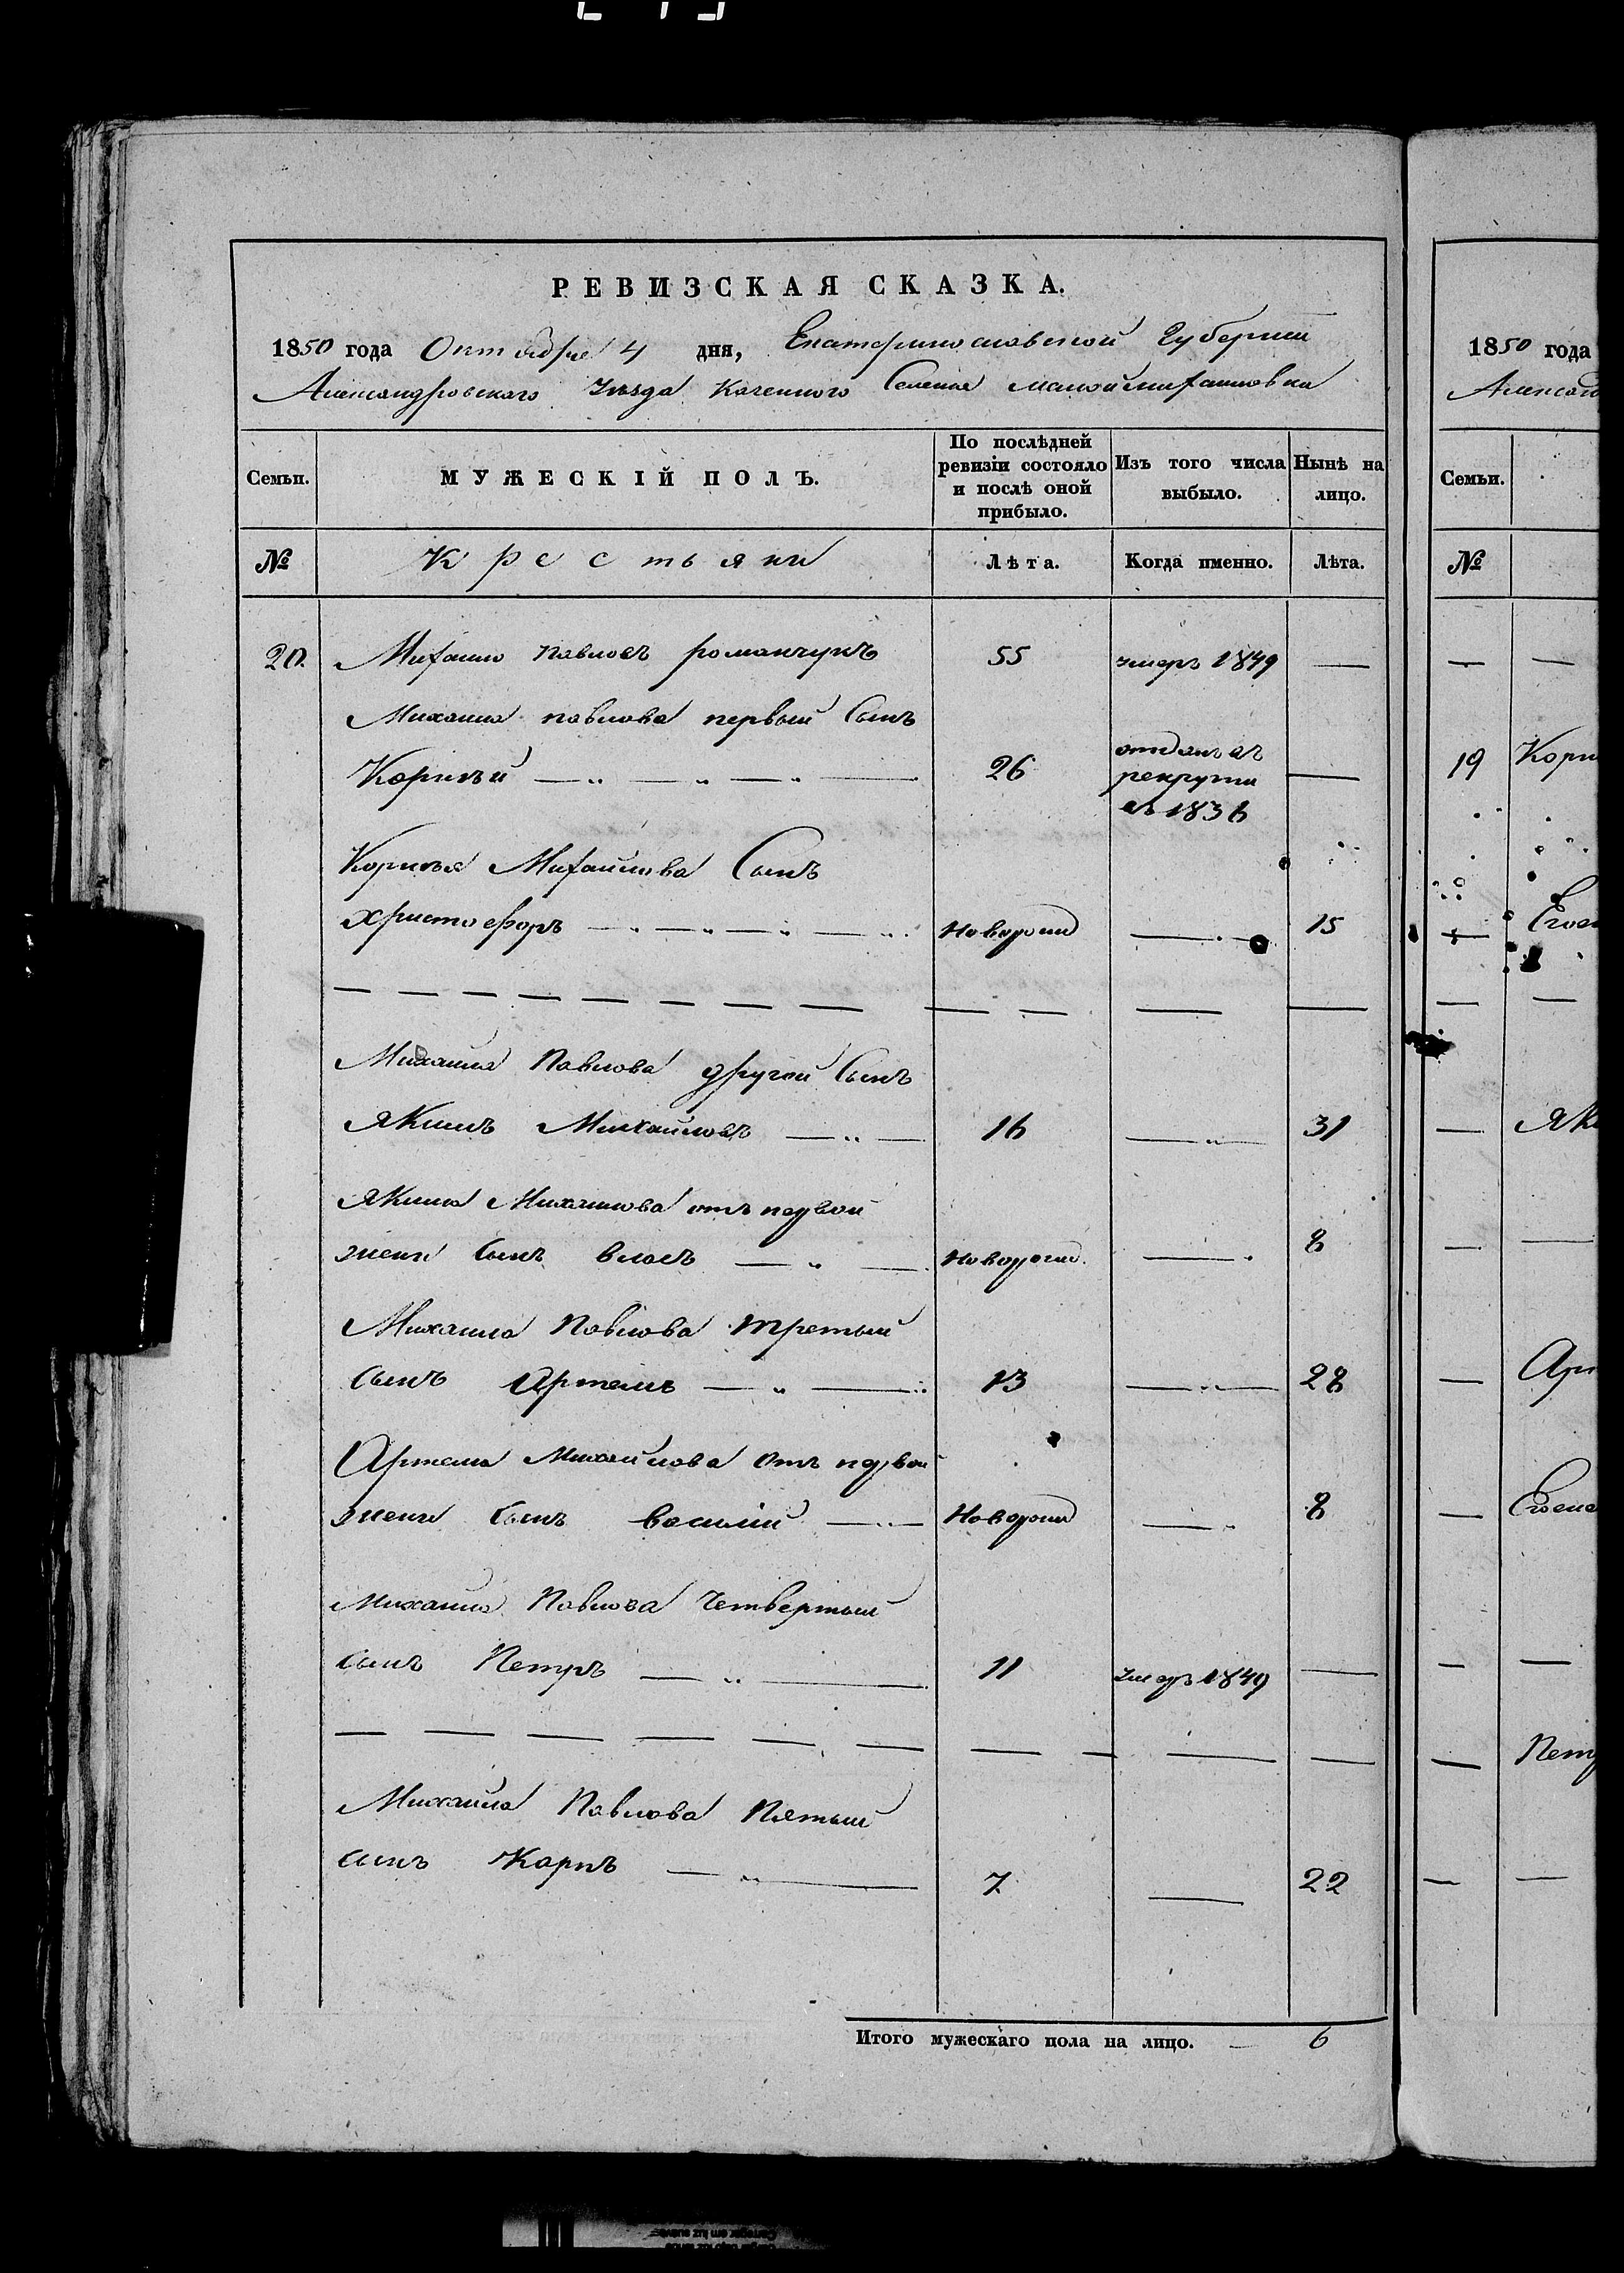 РЕВИЗСКАЯ СКАЗКА.
1850 года Октября 4 дня, Екатеринославской Губернии
Александровскаго Уѣзда Казенного Селения Малоймихайловки
Семьи.
МУЖЕСКІЙ ПОЛЪ.
По послѣдней ревизіи состояло и послѣ оной прибыло.
Изъ того числа выбыло.
Нынѣ на лицо.
№ Крестьяни Лѣта. Когда именно. Лѣта.
20. Михайло Павловъ романчукъ 55 умеръ 1849 —
Михаила павлова первый Сынъ
Корнѣй — „ — „ — „ — 26 отданъ въ рекруты въ 1836 —
Корнѣя Михайлова Сынъ
Христофоръ — „ — „ — „ — „ Новорожд — 15
Михаила Павлова другой Сынъ
Якимъ Михайловъ — „ — 16 — „ — 31
Якима Михаилова отъ первой
жени Сынъ власъ — „ — Новорожд. — 8
Михаила Павлова Третьий
сынъ Артемъ — „ — 13 — „ — 28
Артема Михайлова Отъ первой
жени Сынъ василий — „ — Новорожд — „ 8
Михаила Павлова Четвертый
сынъ Петръ — „ — 11 умеръ 1849 —
Михайла Павлова Пятый
сынъ Карпъ — „ — 7 — 22
Итого мужескаго пола на лицо. — 6
1850 года
Александ
Семьи.
№
19 Корн
Яки
Арт
Петр